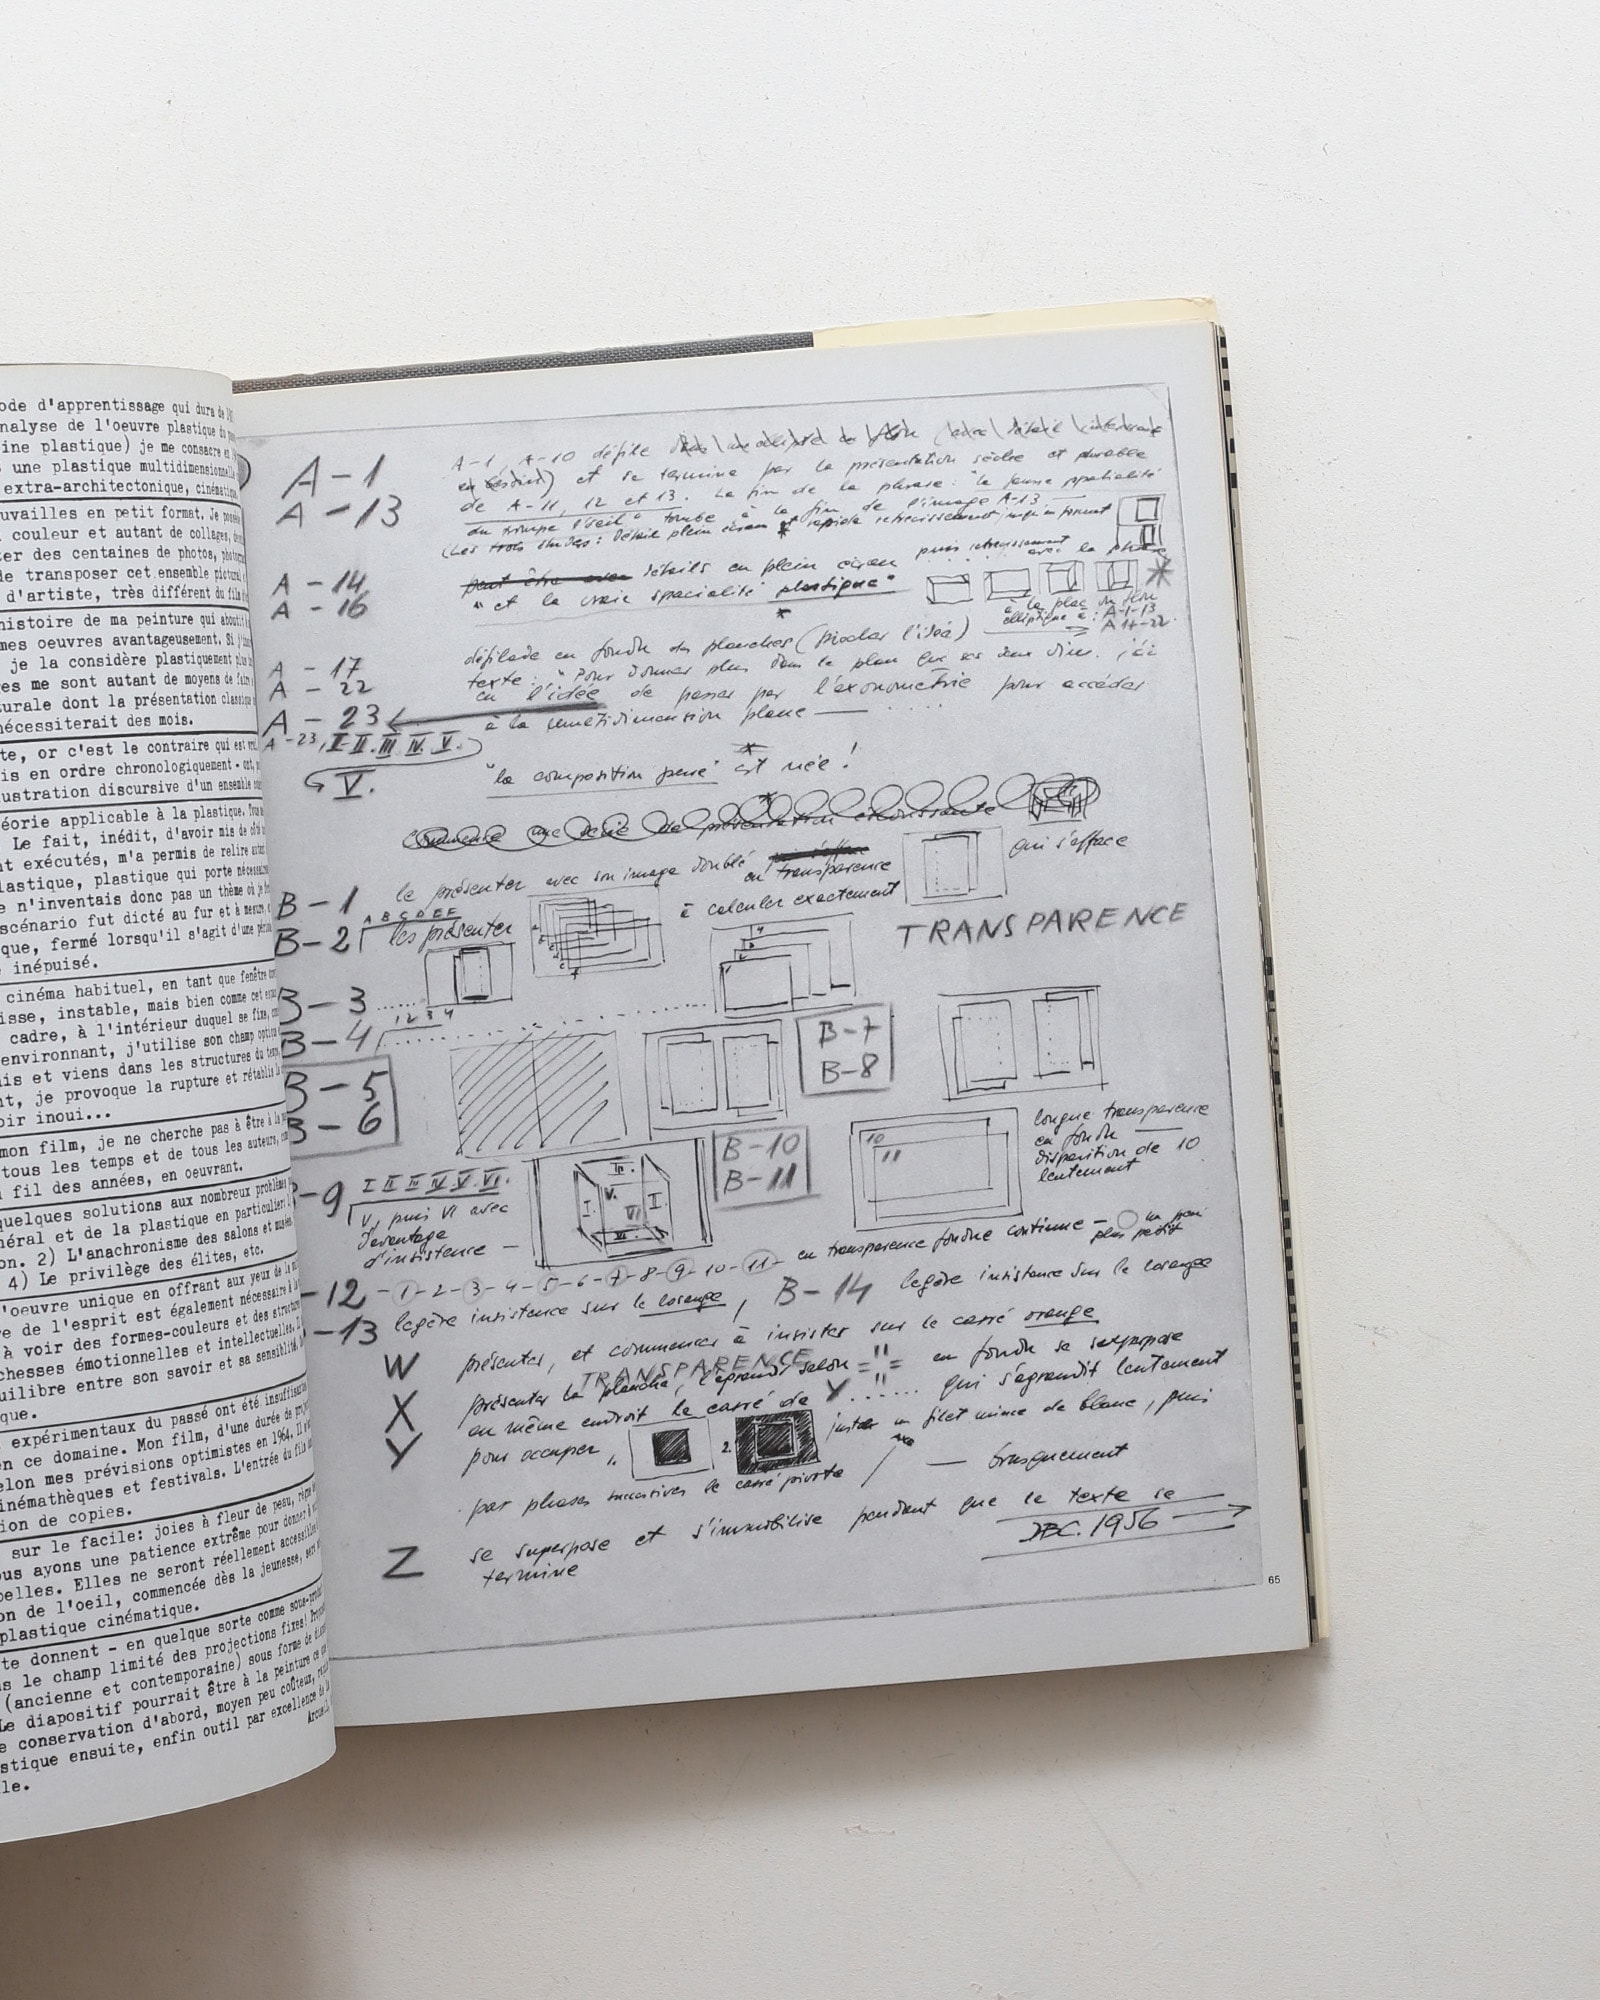 ode d'apprentissage qui dura de
nalyse de l'oeuvre plastique du
ine plastique) je me consacre en
s une plastique multidimensionnelle
extra-architectonique, cinématique,
uvailles en petit format. Je
couleur et autant de collages,
ter des centaines de photos,
de transposer cet ensemble pictural
d'artiste, très différent du film
histoire de ma peinture qui aboutit
mes oeuvres avantageusement. Si
je la considère plastiquement plus
ges me sont autant de moyens de faire
turale dont la présentation classique
nécessiterait des mois.
te, or c'est le contraire qui est
is en ordre chronologiquement -
lustration discursive d'un ensemble
éorie applicable à la plastique.
Le fait, inédit, d'avoir mis de côté
nt exécutés, m'a permis de relire
lastique, plastique qui porte
e n'inventais donc pas un thème où je
scénario fut dicté au fur et à mesure,
que, fermé lorsqu'il s'agit d'une
e inépuisé.
cinéma habituel, en tant que fenêtre
isse, instable, mais bien comme cet
cadre, à l'intérieur duquel se fixe,
environnant, j'utilise son champ
is et viens dans les structures du temps,
nt, je provoque la rupture et rétablis
oir inoui...
mon film, je ne cherche pas à être à la
tous les temps et de tous les auteurs,
fil des années, en oeuvrant.
quelques solutions aux nombreux problèmes
néral et de la plastique en particulier:
on. 2) L'anachronisme des salons et
4) Le privilège des élites, etc.
l'oeuvre unique en offrant aux yeux de
e de l'esprit est également nécessaire à
à voir des formes-couleurs et des structures
chesses émotionnelles et intellectuelles.
uilibre entre son savoir et sa sensibilité,
que.
expérimentaux du passé ont été
en ce domaine. Mon film, d'une durée de
elon mes prévisions optimistes en 1964. Il
inémathèques et festivals. L'entrée du film
ion de copies.
sur le facile: joies à fleur de peau,
us ayons une patience extrême pour donner
belles. Elles ne seront réellement
on de l'oeil, commencée dès la jeunesse,
plastique cinématique.
te donnent - en quelque sorte comme
s le champ limité des projections fixes!
(ancienne et contemporaine) sous forme de
Le diapositif pourrait être à la peinture ce
e conservation d'abord, moyen peu coûteux,
stique ensuite, enfin outil par excellence de
le.
A-1 A-1, A-10 défile
A-13 et se termine par la présentation sèche et durable
de A-11, 12 et 13. La fin de la phrase: "la fausse spatialité
du trompe l'oeil" tombe à la fin de l'image A-13
(Les trois studes: Détail plein écran et rapide retrecissement
A-14 peut être avec détails en plein écran puis retrecissement avec la phrase
A-16 "et la vraie spacialité plastique"
à la place
elliptique à: A-1-13
A 14-22
A-17 défilade en fondu des planches (l'idéa)
A-22 texte: "Pour donner plus dans le plan que ses deux dim. j'ai
eu l'idée de passer par l'axonométrie pour accéder
A-23 à la dimension plane
A-23, I II III IV. V.
V. "la composition pure" est née!
Commence une serie de présentation éblouissante
B-1 le présenter avec son image doublé en transparence qui s'efface
A B C D E F
B-2 les présenter à calculer exactement
TRANSPARENCE
B-3
1 2 3 4
B-4
B-7
B-8
B-5
B-6
B-10
B-11
10
11
longue transparence
en fondu
disparition de 10
lentement
-9 I II III IV V VI.
V, puis VI avec
davantage
d'insistence —
I. II III IV. V. VI
-12 - 1 - 2 - 3 - 4 - 5 - 6 - 7 - 8 - 9 - 10 - 11 - en transparence fondue continue — un peu plus petit
-13 legère insistence sur le losange, B-14 legère insistence sur le losange
W présenter, et commencer à insister sur le carré orange
TRANSPARENCE
X présenter la planche, l'agrandir selon =" "= en fondu se surpose
en même endroit le carré de Y....... qui s'agrandit lentement
Y pour occuper 1. 2. juste un filet mince de blanc, puis
par phases successives le carré pivote — brusquement
Z se superpose et s'immobilise pendant que le texte se
termine
1956
65